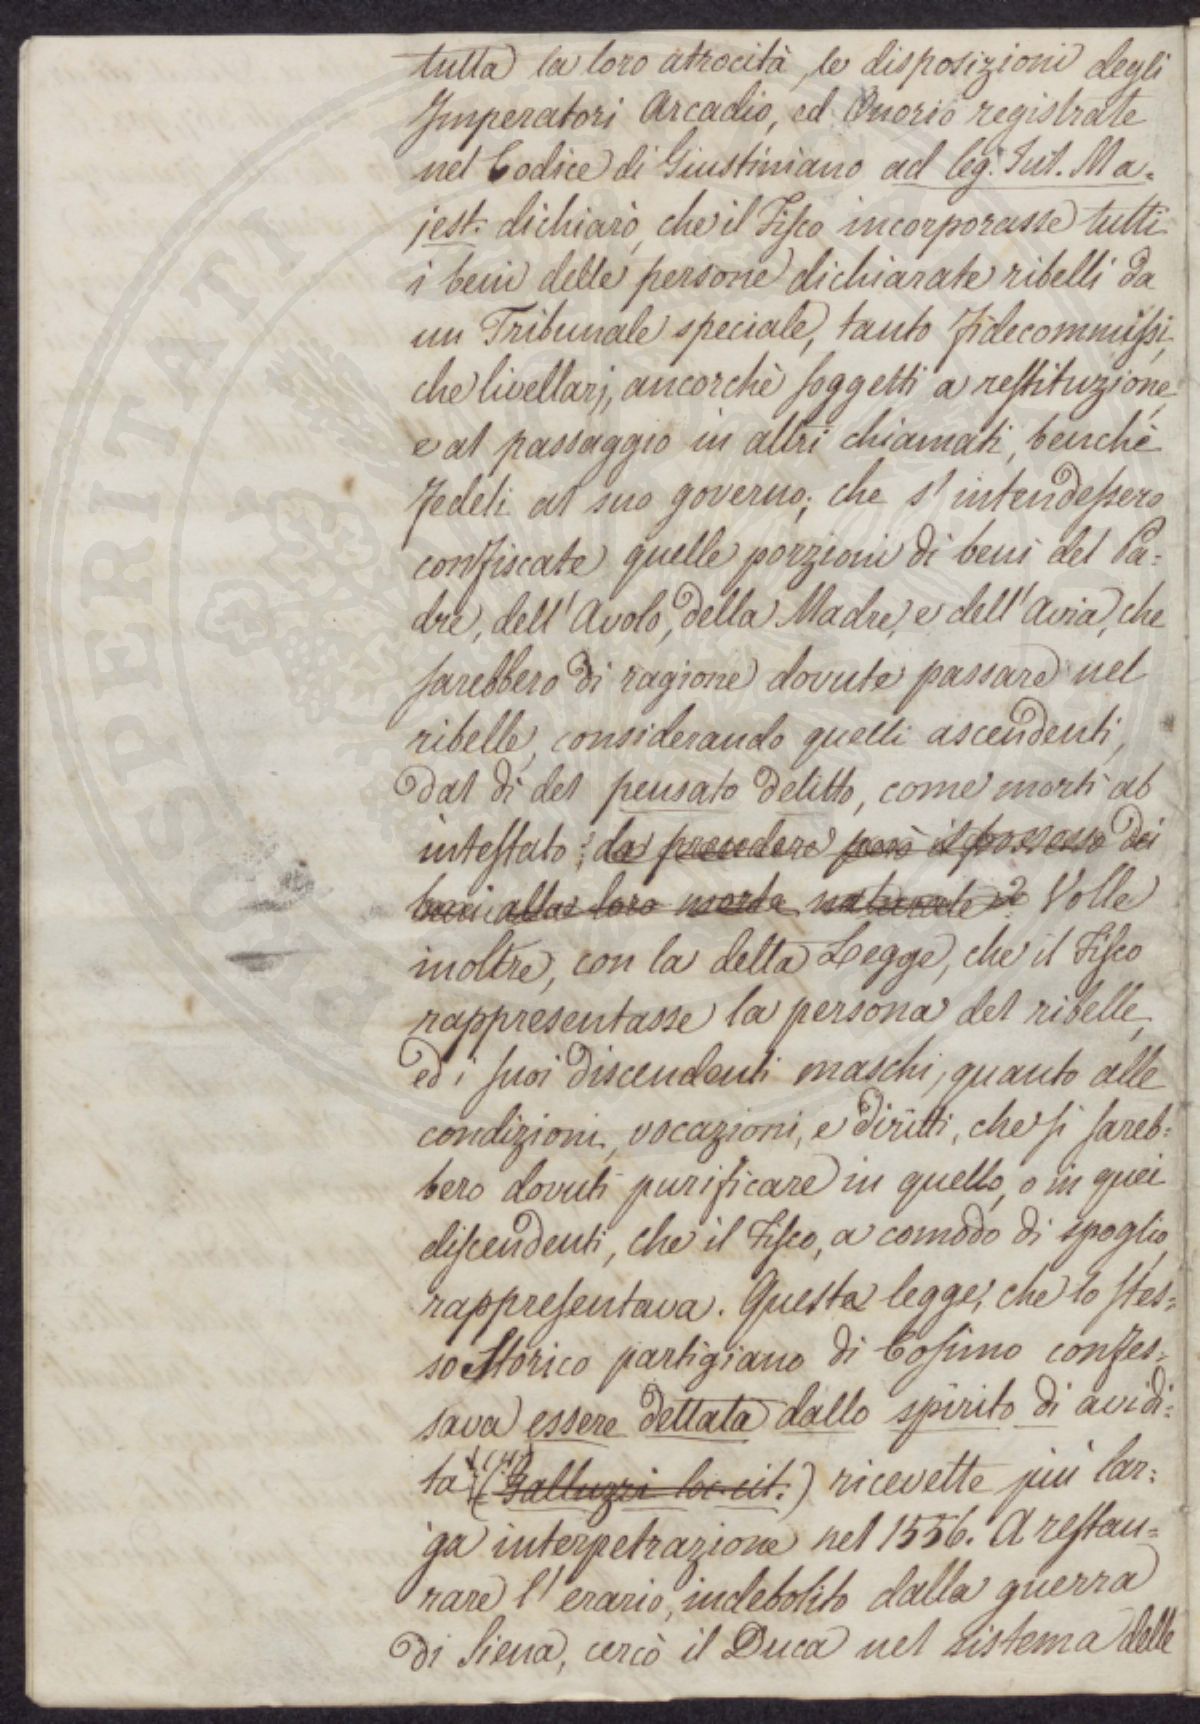 tutta la loro atrocità, le disposizioni degli
Imperatori Arcadio, ed Onorio registrate
nel Codice di Giustiniano ad leg. Jul. Ma=
jest. dichiarò, che il Fisco incorporasse tutti
i beni delle persone dichiarate ribelli da
un Tribunale speciale, tanto fidecommissi,
che livellarj, ancorchè soggetti a restituzione,
e al passaggio in altri chiamati, benchè
fedeli al suo governo; che s'intendessero
confiscate quelle porzioni di beni del Pa=
dre, dell'Avolo, della Madre, e dell'Avia, che
sarebbero di ragione dovute passare nel
ribelle, considerando quelli ascendenti,
dal dì del pensato delitto, come morti ab
intestato; da prendere però il possesso dei
beni alla loro morte naturale. Volle
inoltre, con la detta Legge, che il Fisco
rappresentasse la persona del ribelle,
ed i suoi discendenti maschi, quanto alle
condizioni, vocazioni, e diritti, che si sareb=
bero dovuti purificare in quello, o in quei
discendenti, che il Fisco, a comodo di spoglio,
rappresentava. Questa legge, che lo stes=
so Storico partigiano di Cosimo confes=
sava essere dettata dallo spirito di avidi=
tà (Galluzzi loc. cit.) ricevette più lar=
ga interpetrazione nel 1556. A restau=
rare l'erario, indebolito dalla guerra
di Siena, cercò il Duca nel sistema delle
PROSPERITATI